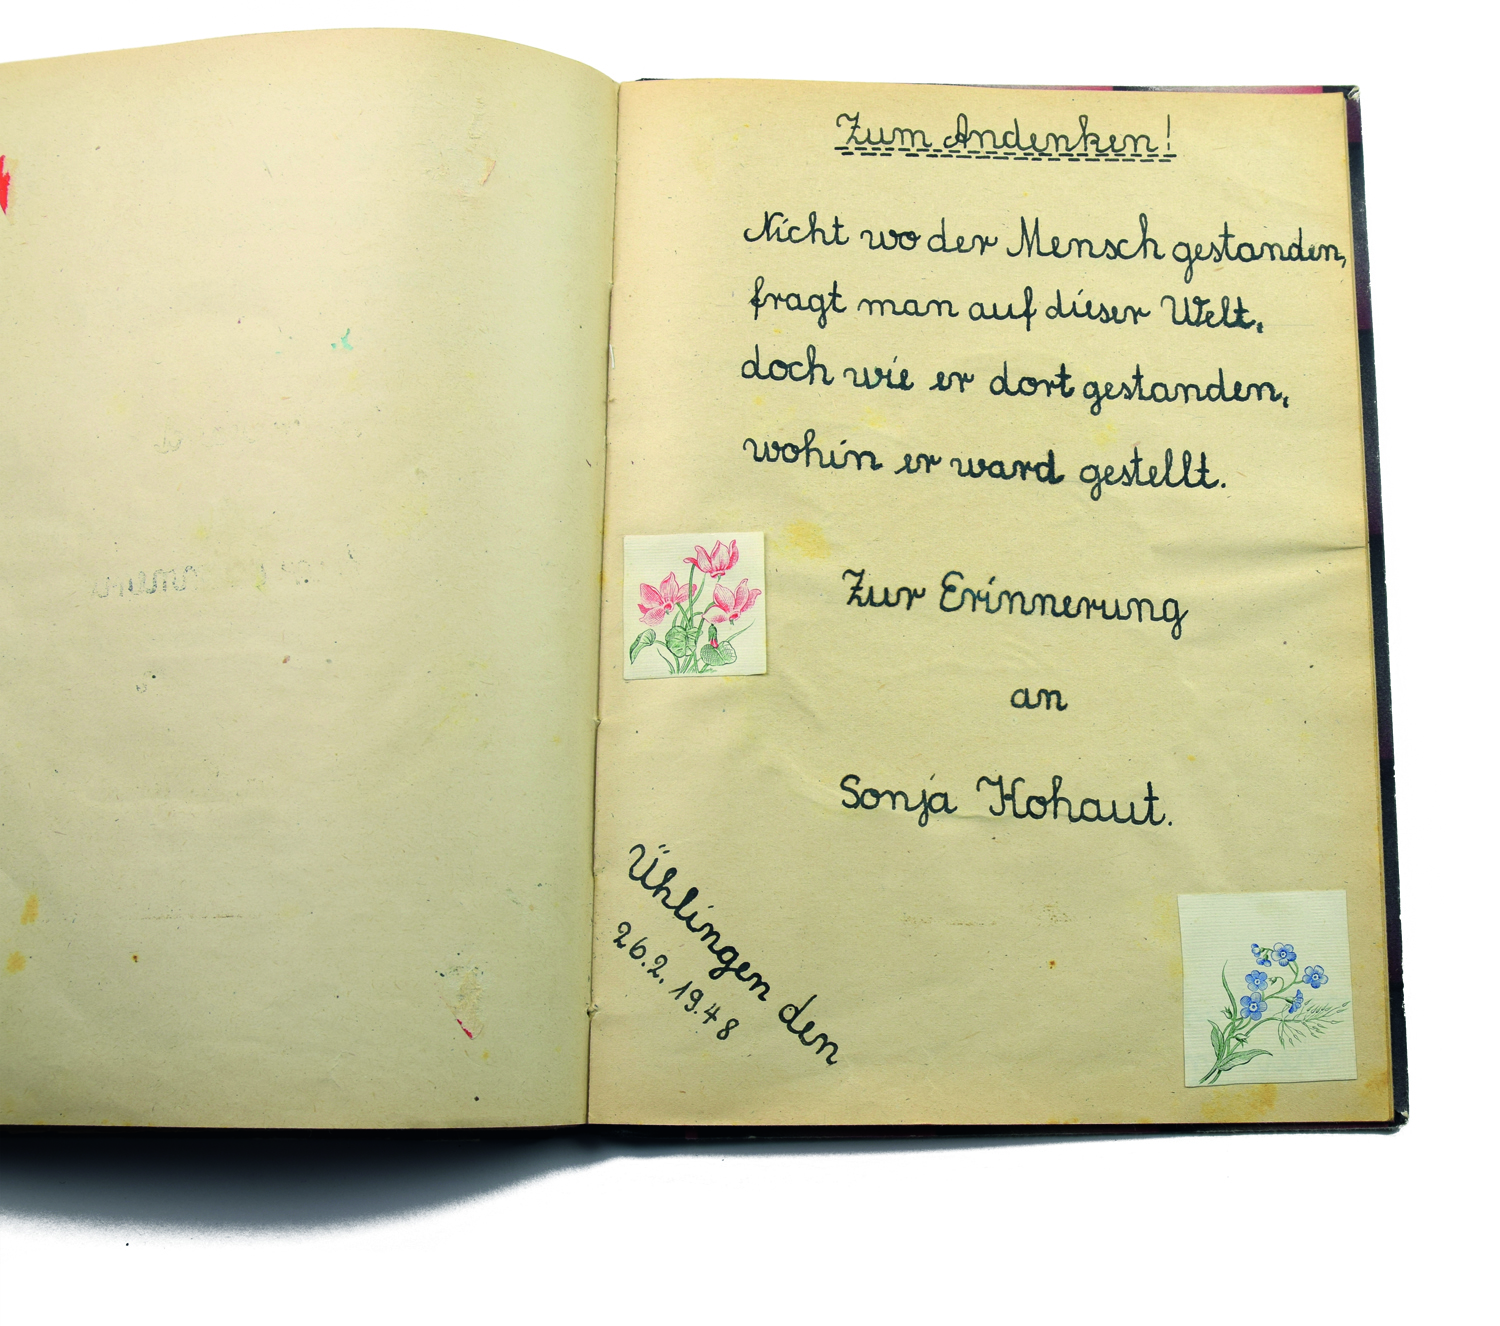 Zum Andenken!
Nicht wo der Mensch gestanden,
fragt man auf dieser Welt,
doch wie er dort gestanden,
wohin er ward gestellt.
Zur Erinnerung
an
Sonja Kohaut.
Ühlingen den
26.2.1948